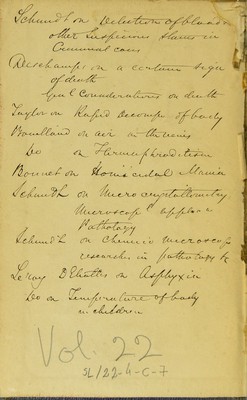 Schmidt on Detection of blood &
other suspicious stains in
Criminal cases
Deschamps on a certain sign
of death
Genl Considerations on death
Taylor on Rapid Decomp. of body
Bouilland on air in the veins
Do on Hermaphroditism
Bonnet on Homicidal Mania
Schmidt on Microcrystallometry
Microscopl applon
Pathology
Schmidt on Chemico microscop
researches in pathology &
Leroy D'Etiolles on Asphyxia
Do on Temperature of body
in children
Vol. 22